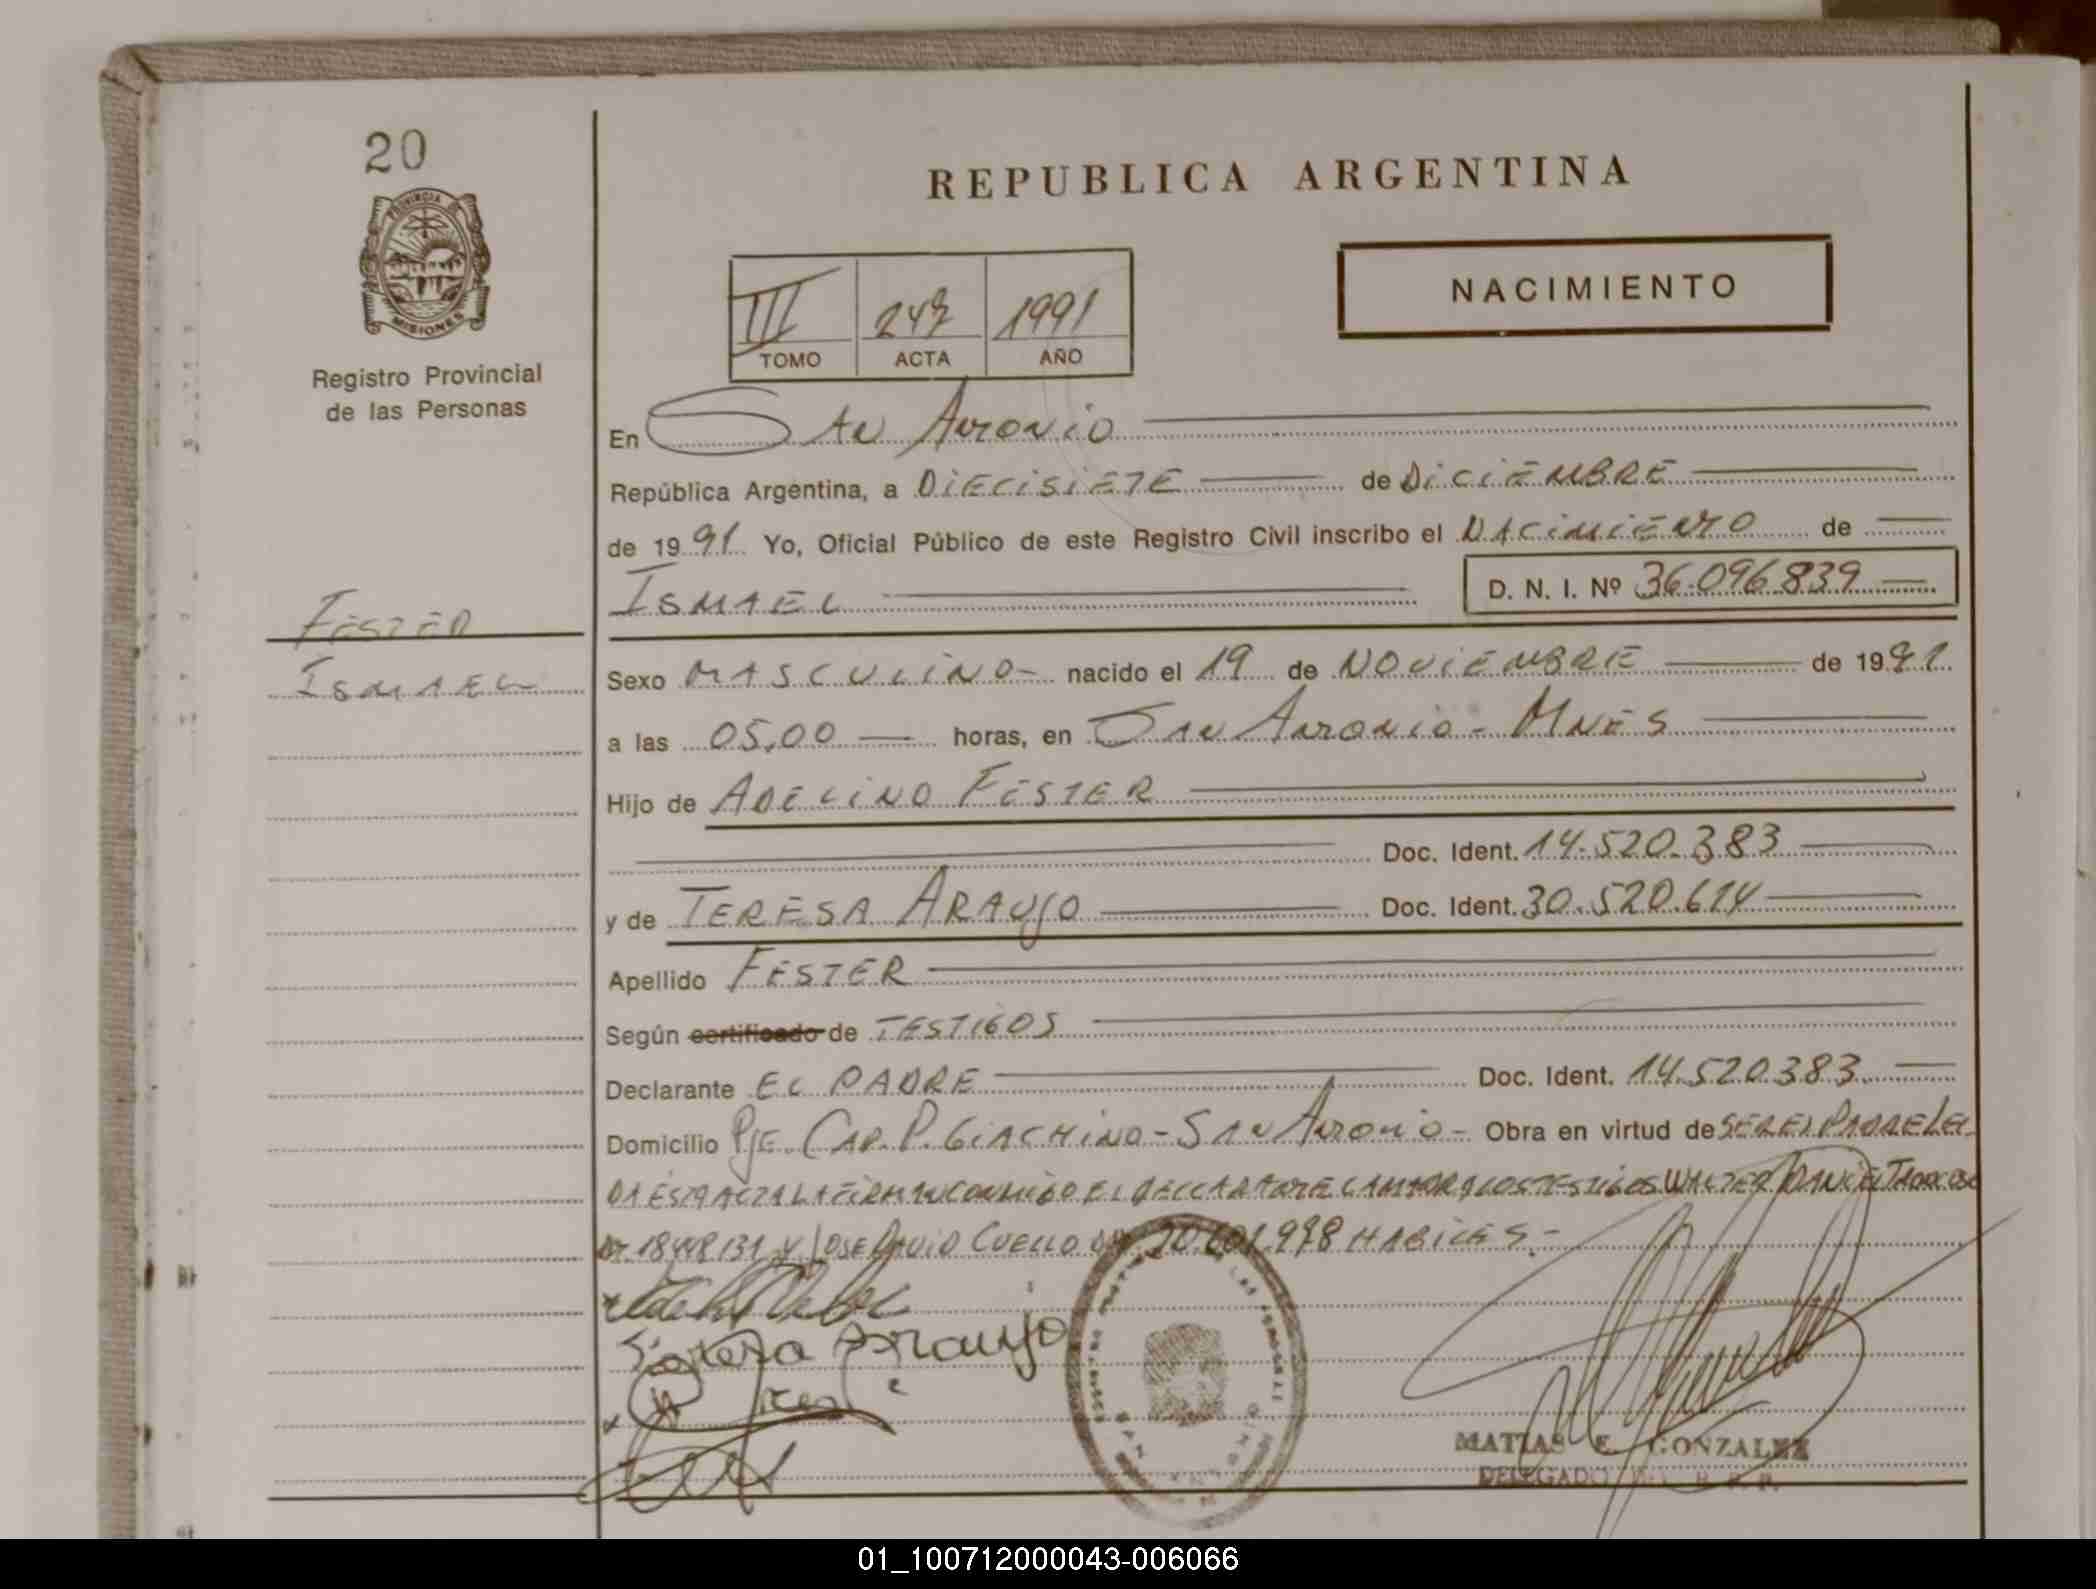 20
REPUBLICA ARGENTINA
PROVINCIA DE
MISIONES
Registro Provincial
de las Personas
NACIMIENTO
III 247 1991
TOMO ACTA AÑO
En San Antonio
República Argentina, a Diecisiete de Diciembre
de 1991 Yo, Oficial Público de este Registro Civil inscribo el Nacimiento de
Ismael D. N. I. Nº 36.096.839
Fester
Ismael
Sexo Masculino nacido el 19 de Noviembre de 1991
a las 05,00 horas, en San Antonio - Mnes
Hijo de Adelino Fester
Doc. Ident. 14.520.383
y de Teresa Araujo Doc. Ident. 30.520.614
Apellido Fester
Según certificado de Testigos
Declarante El Padre Doc. Ident. 14.520.383
Domicilio Pje Cap. P. Giachino - San Antonio - Obra en virtud de ser el Padre Lei
da esta acta la firman conmigo el declarante la madre y los testigos Walter Daniel
18.448.131 y Jose David Cuello 20.601.978 habiles.-
Teresa Araujo
MATIAS E. GONZALEZ
DELEGADO R. P. P.
01_100712000043-006066